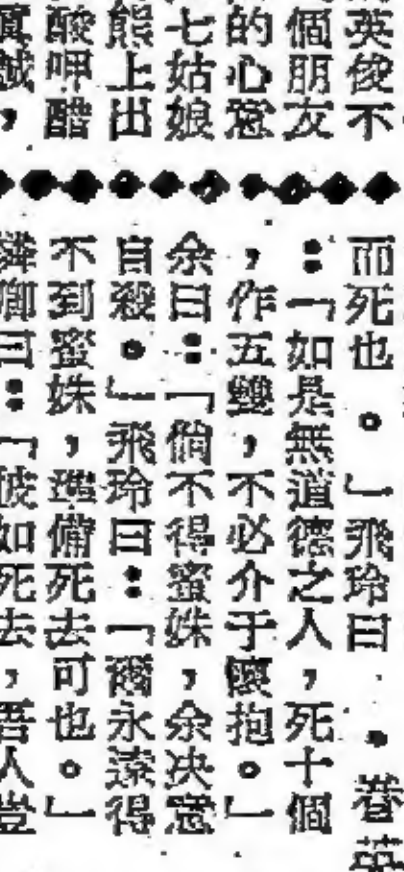 英俊不
個朋友
的心意
七姑娘
熊上出
酸呷醋
真誠,
而死也。」飛玲曰
:「如是無道德之人,死十個
,作五雙,不必介于懷抱。」
余曰:「倘不得蜜姝,余决意
自殺。」飛玲曰:「爾永遠得
不到蜜姝,準備死去可也。」
卿曰:「彼如死去,吾人豈